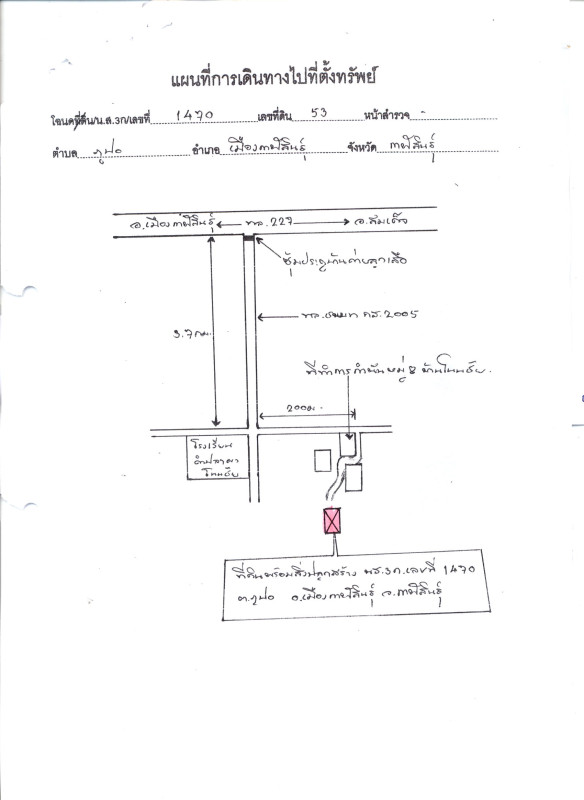 แผนที่การเดินทางไปที่ตั้งทรัพย์
โฉนดที่ดิน/น.ส.3ก/เลขที่ 1470 เลขที่ดิน 53 หน้าสำรวจ -
ตำบล ภูปอ อำเภอ เมืองกาฬสินธุ์ จังหวัด กาฬสินธุ์
อ.เมืองกาฬสินธุ์ ทล.227 อ.สมเด็จ
ซุ้มประตูบ้านค่ายลูกเสือ
ทล.ชนบท กส.2005
3.7 กม.
ที่ทำการกำนันหมู่ 8 บ้านโนนชัย
200ม.
โรงเรียน
โนนชัย
ที่ดินพร้อมสิ่งปลูกสร้าง นส.3ก.เลขที่ 1470
ต.ภูปอ อ.เมืองกาฬสินธุ์ จ.กาฬสินธุ์